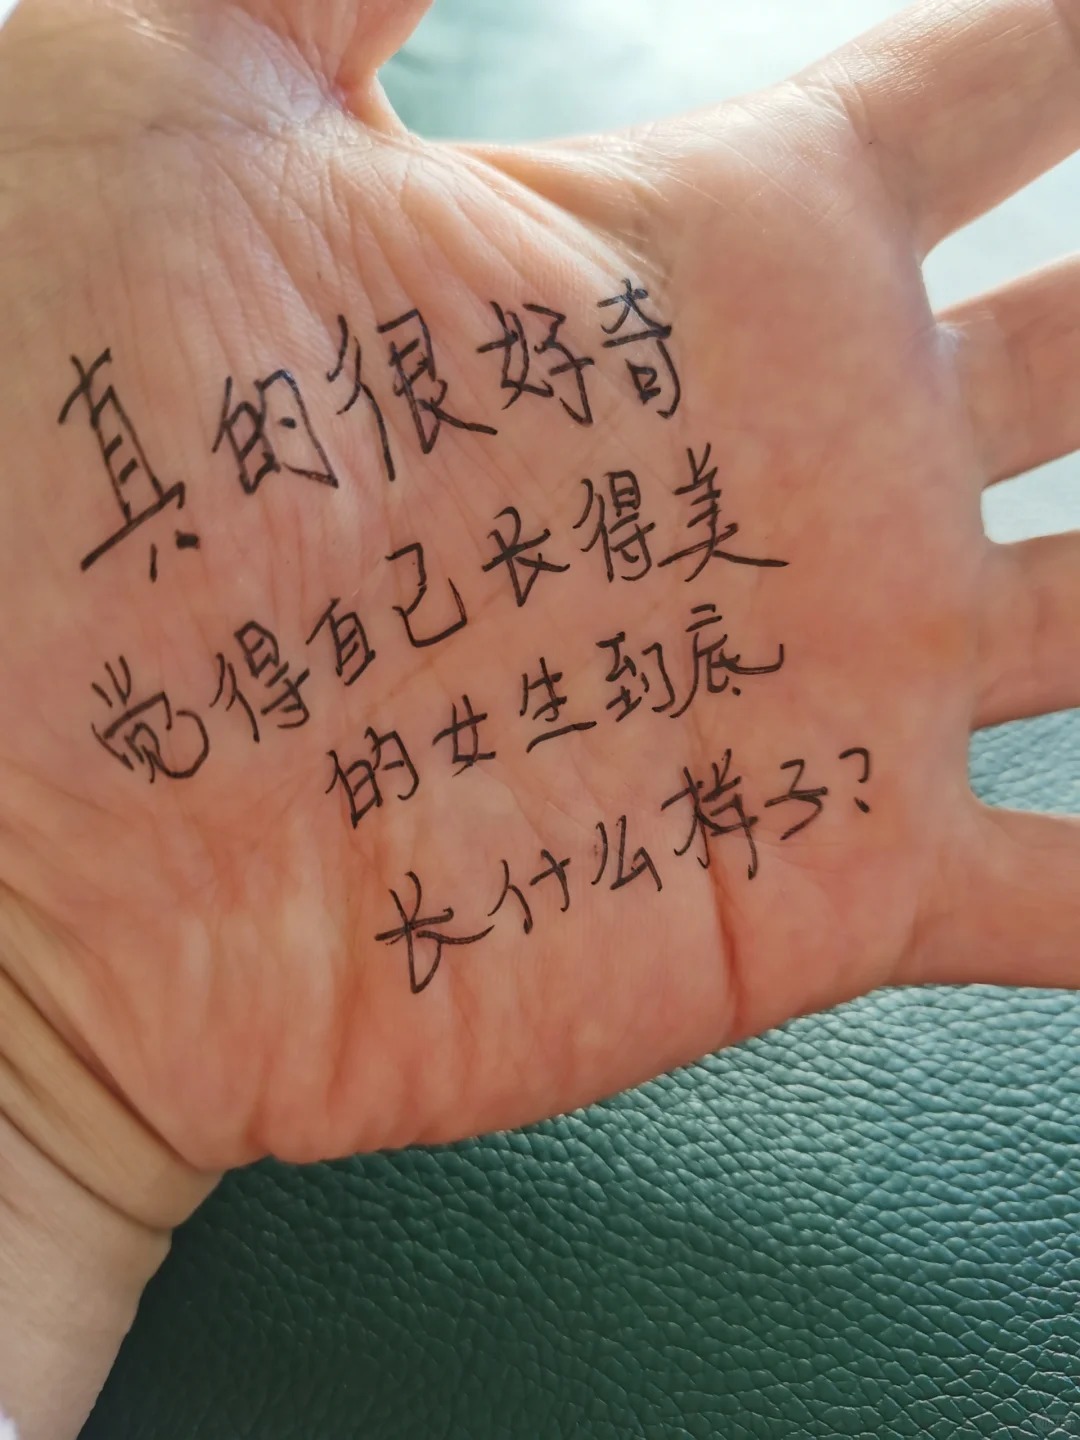 真的很好奇
觉得自己长得美
的女生到底
长什么样子?